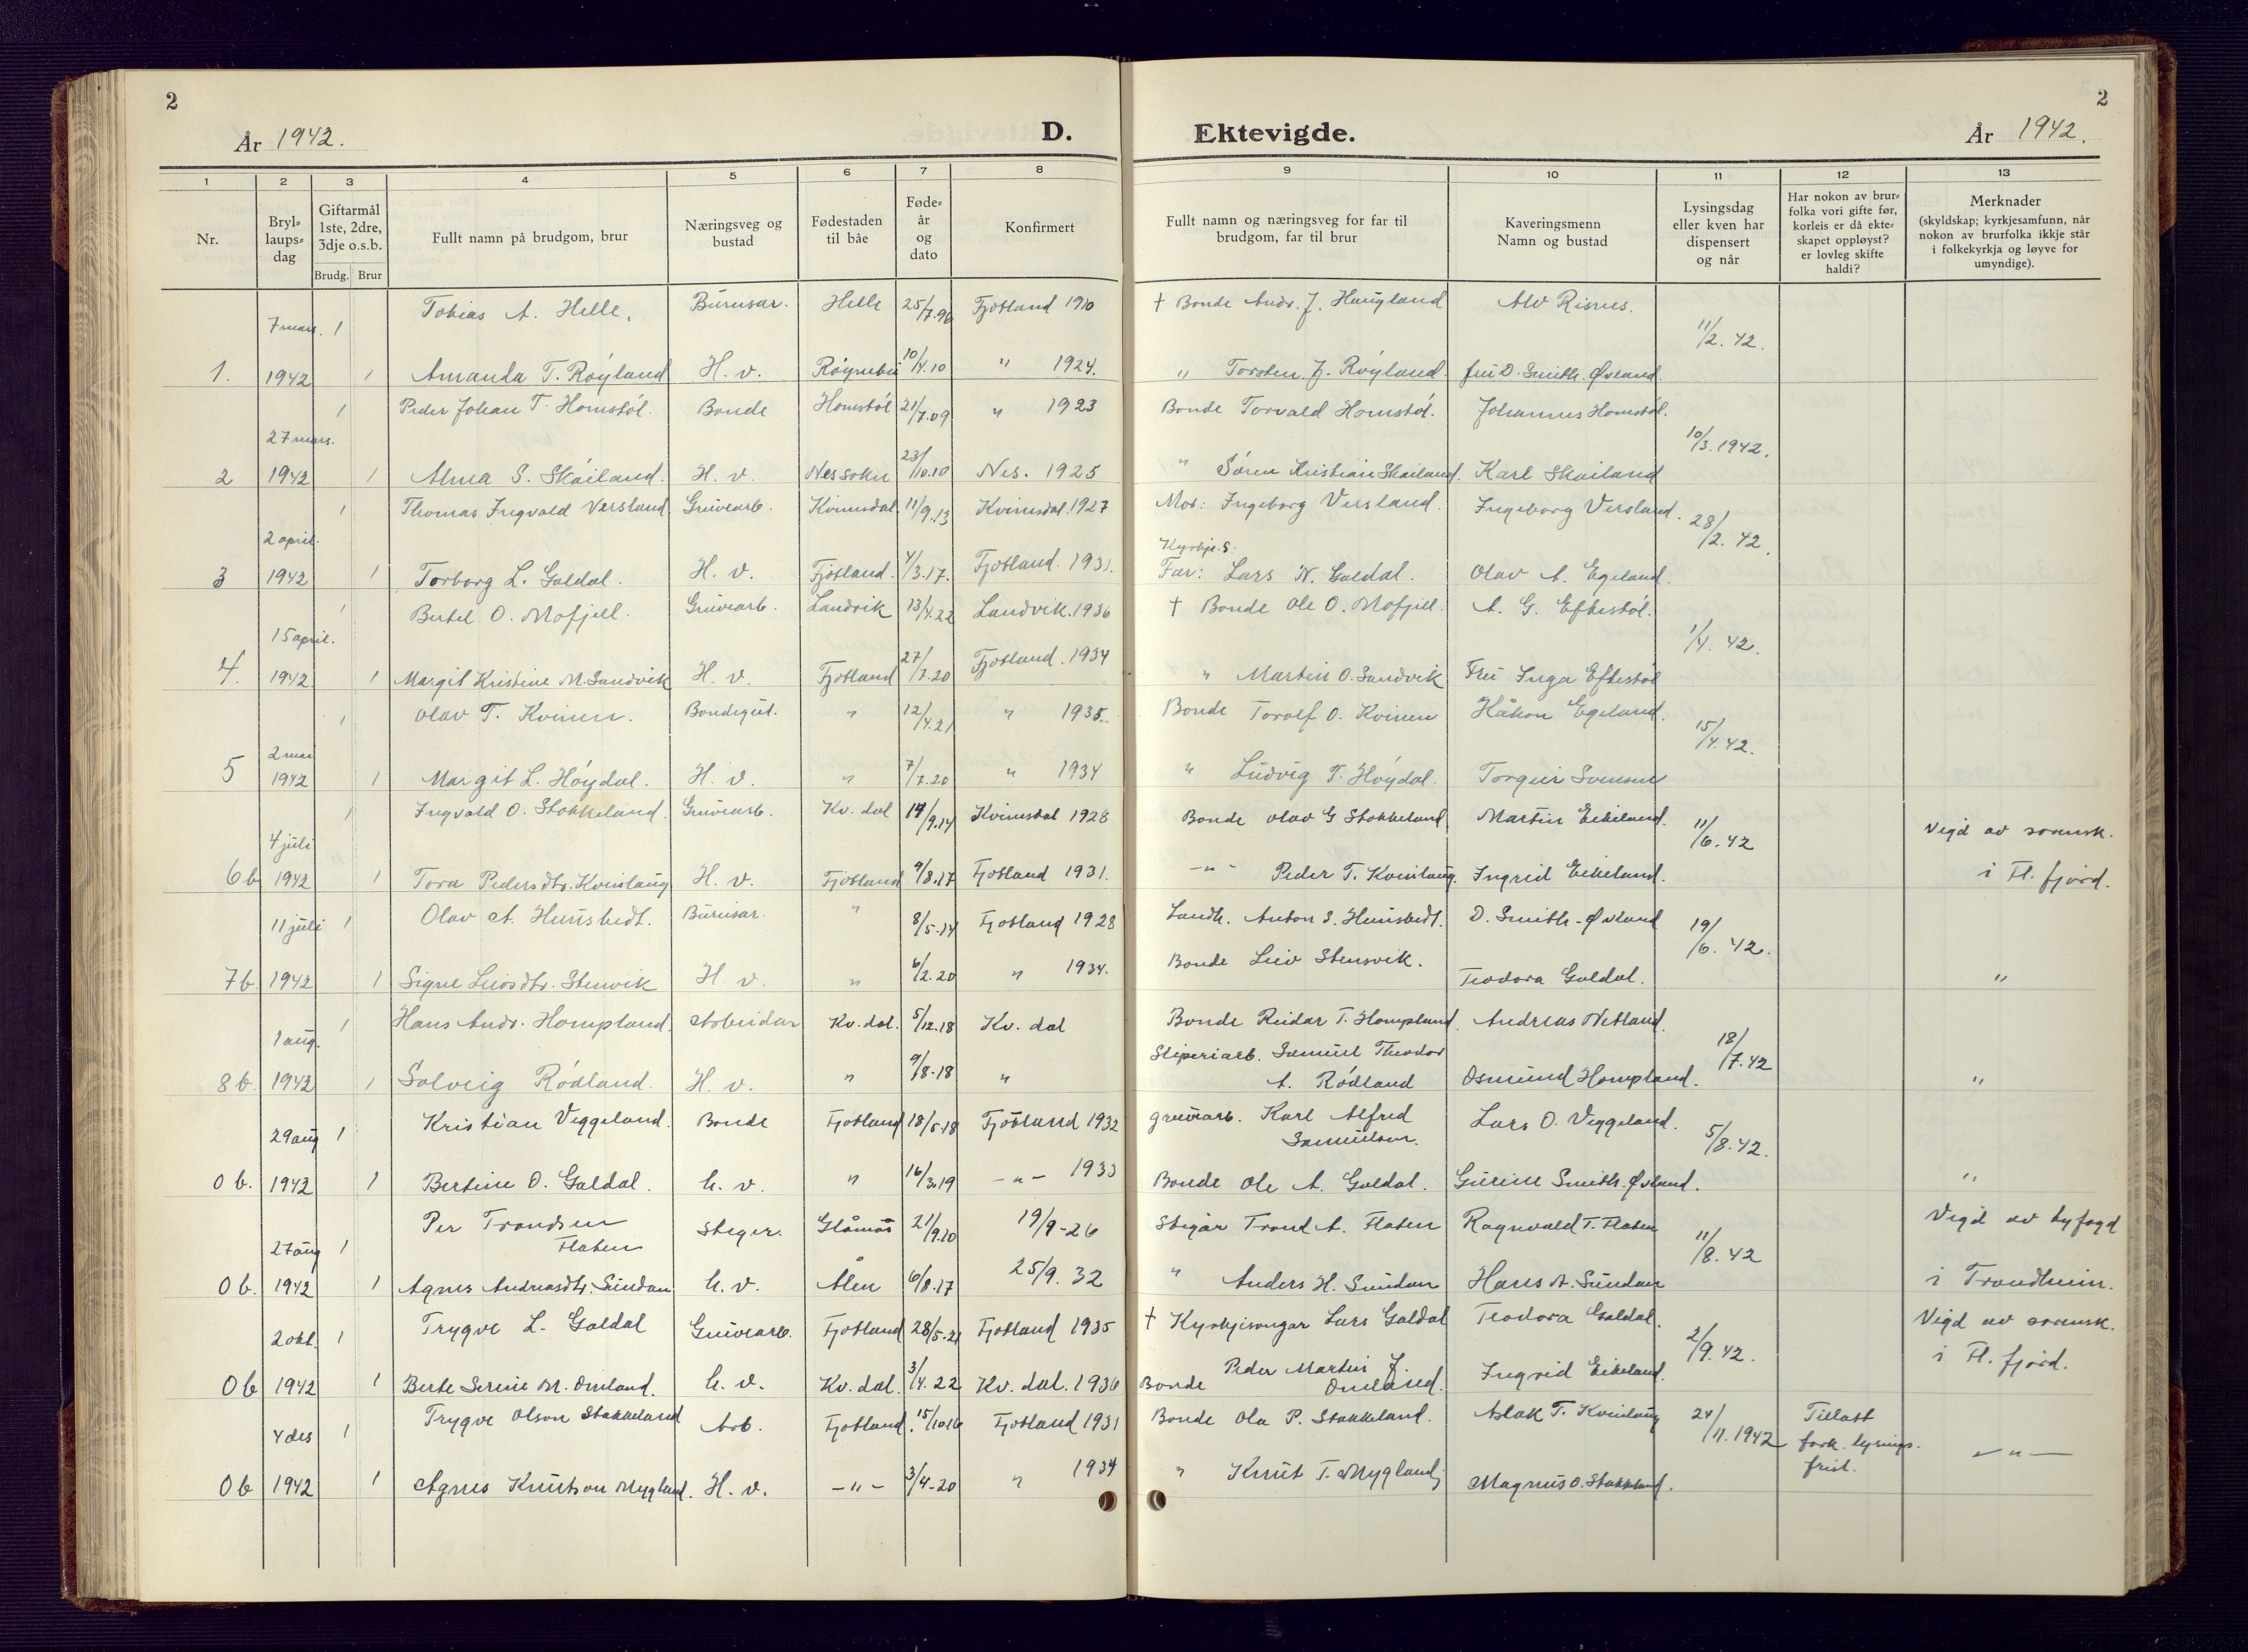 2
År 1942.
D.
1 2 3 4 5 6 7 8
Nr.
Bryl-
laups-
dag
Giftarmål
1ste, 2dre,
3dje o.s.b.
Brudg. Brur
Fullt namn på brudgom, brur
Næringsveg og
bustad
Fødestaden
til båe
Føde-
år
og
dato
Konfirmert
7 mars. 1 Tobias A. Helle. Búrusar. Helle 25/7.96 Fjotland 1910
1. 1942 1 Amanda T. Röyland H. v. 10/4.10 " 1924.
1 Peder Johan T. Homstöl. Bonde Homstöl 21/7.09 " 1923
27 mars.
2 1942 1 Alma S. Skáiland. H. v. Nes sokn 23/10.10 Nes. 1925
1 Thomas Ingvald Versland Grúvearb. Kvinesdal 11/9.13 Kvinesdal. 1927
2 april.
3 1942 1 Torborg L. Galdal. H. v. Fjotland. 4/3.17. Fjotland. 1931.
1 Bertel O. Mofjell. Grúvearb. Landvik 13/4.22 Landvik. 1936
15 april.
4. 1942. 1 Margit Kristine M. Sandvik H. v. Fjotland 27/7.20 Fjotland. 1934
1 Olav T. Kvinen. Bondegút. " 12/4.21 " 1935.
2 mai
5 1942 1 Margit L. Höydal. H. v. " 7/7.20 " 1934
1 Ingvald O. Stokkeland. Grúvearb. Kv. dal 14/9.14 Kvinesdal 1928
4 júli
6 b 1942 1 Tora Pedersdtr. Kvinlaúg H. v. Fjotland 9/8.17 Fjotland 1931.
11 júli 1 Olav A. Húnsbedt. Búrusar. " 8/5.14 Fjotland 1928
7 b. 1942 1 Signe Leivsdtr. Stenvik H. v. " 6/2.20 " 1934.
1 aúg. 1 Hans Andr. Hompland. Arbeidar Kv. dal. 5/12.18 Kv. dal
8 b. 1942 1 Solveig Rödland. H. v. " 9/8-18 "
29 aúg 1 Kristian Veggeland. Bonde Fjotland 18/5.18 Fjotland 1932
0 b. 1942 1 Bertine O. Galdal. h. v. " 16/3.19 -"- 1933
27 aúg 1 Per Trondsen
Flaten Steiger. Glåmos 21/9.20 19/9-26
0 b. 1942 1 Agnes Andreasdtr. Súndan h. v. Ålen 6/8.17 25/9. 32
2 okt. 1 Trygve L. Galdal Grúvearb. Fjotland 28/5.21 Fjotland 1935
0 b 1942 1 Berte Serine M. Omland. h. v. Kv. dal. 3/4.22 Kv. dal. 1936
4 des 1 Trygve Olson Stakkeland Arb. Fjotland. 15/10.16 Fjotland 1931
0 b 1942 1 Agnes Knútson Mygland. H. v. -"- 3/4-20 " 1934
2
Ektevigde.
År 1942.
9 10 11 12 13
Fullt namn og næringsveg for far til
brudgom, far til brur
Kaveringsmenn
Namn og bustad
Lysingsdag
eller kven har
dispensert
og når
Har nokon av brur-
folka vori gifte før,
korleis er då ekte-
skapet oppløyst?
er lovleg skifte
haldi?
Merknader
(skyldskap; kyrkjesamfunn, når
nokon av brurfolka ikkje står
i folkekyrkja og løyve for
umyndige).
† Bonde Andr. J. Haúgland Alv Risnes.
11/2. 42.
" Torsten J. Röyland. frú D. Smith. Øvland.
Bonde Torvald Homstöl. Johannes Homstöl.
10/3. 1942.
" Sören Kristian Skailand. Karl Skailand
Mor: Ingeborg Versland. Ingeborg Versland.
28/2. 42.
Kyrkje s.
Far: Lars N. Galdal. Olav A. Egeland.
† Bonde Ole O. Mofjell. A. G. Eftestöl.
1/4. 42.
" Martin O. Sandvik Frú Inga Eftestöl
Bonde Torolf O. Kvinen Håkon Egeland.
15/4. 42.
" Lúdvig T. Höydal. Torgeir Svensen
Bonde Olav G Stokkeland Martin Eikeland.
11/6. 42
Vigd av sorensk.
-"- Peder T. Kvinlaúg. Ingrid Eikeland. i Fl. fjord.
Landh. Anton S. Húnsbedt. D. Smith-Øvland
19/6. 42.
Bonde Leiv Stensvik. Teodora Galdal. "
Bonde Reidar T. Hompland. Andreas Netland.
18/7. 42
Sliperiarb. Samúel Theodor
A. Rödland Osmúnd Hompland. "
grúvearb. Karl Alfred
Samúelsen. Lars O. Veggeland.
5/8. 42.
Bonde Ole A. Galdal. Gúrine Smith. Øvland. "
Stigar Trond A. Flaten Ragnvald T. Flaten
11/8. 42
Vigd av byfogd
" Anders H. Súndan Hans A. Súndan i Trondheim.
† Kyrkjesongar Lars Galdal Teodora Galdal.
2/9. 42.
Vigd av sorensk.
i Fl. fjord.
Bonde Peder Martin J.
Omland. Ingrid Eikeland.
Bonde Ola P. Stakkeland. Aslak T. Kvinlaúg 24/11. 1942 Tillatt
fork. lysings-
frist. -"-
" Knút T. Mygland; Magnús O. Stakkeland.